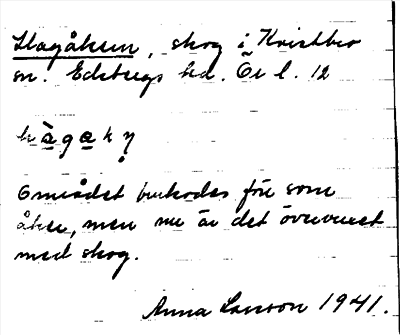 Hagåkern, skog i Kristber
sn. Bobergs hd. Ög l. 12
hàgak
Området brukades för som
åker, men nu är det övervuxet
med skog.
Anna Larsson 1941.